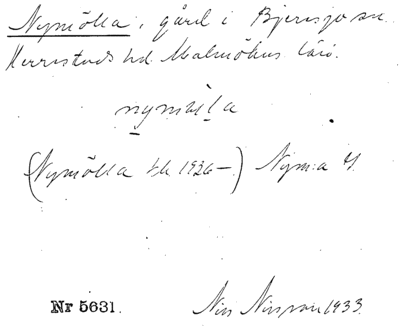 Nymölla, gård i Bjeresjö sn.
Herrestads hd. Malmöhus län.
nymøla
(Nymölla Ek 1926–) Nym:a
Nr 5631. Nils Nilsson 1933.